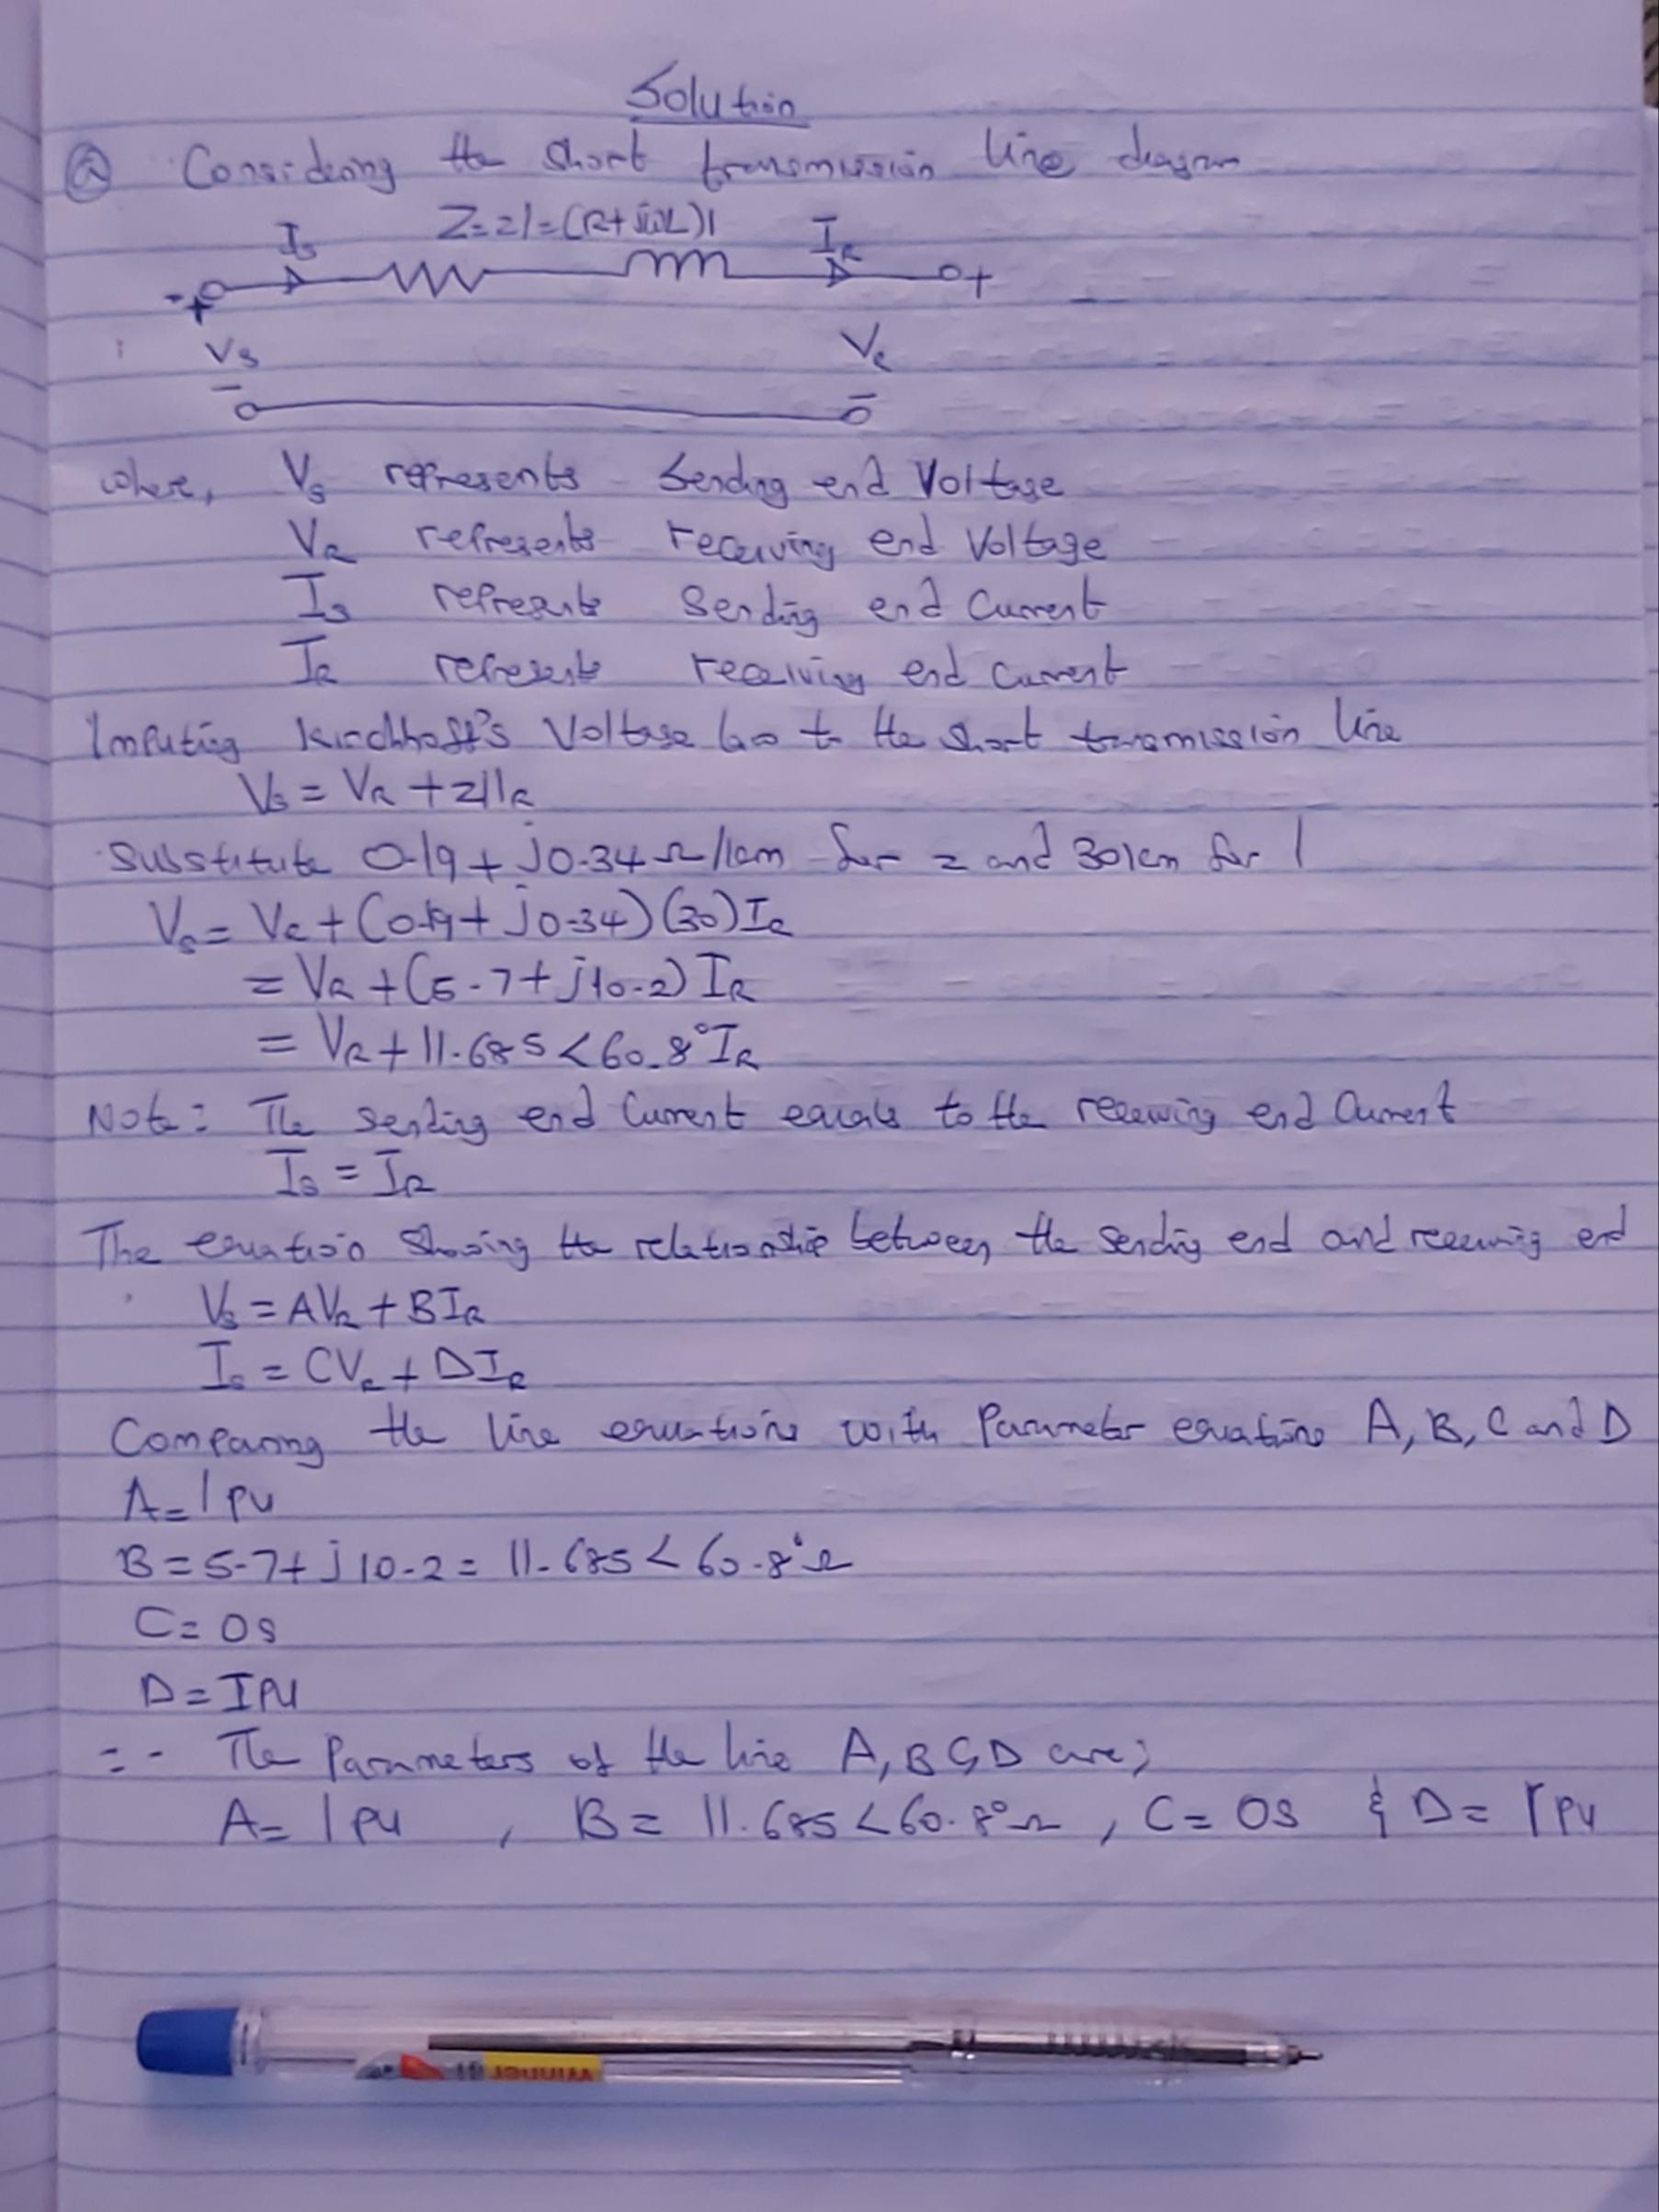 Solution
ⓐ Considering the short transmission line diagram
Z=zl=(R+jωL)l
I_S I_R
+ +
V_S V_R
- -
where, V_S represents sending end Voltage
V_R represents receiving end Voltage
I_S represents sending end Current
I_R represents receiving end Current
Imputing Kirchhoff's Voltage law to the short transmission line
V_S = V_R + zlI_R
Substitute 0.19 + j0.34 Ω/km for z and 30km for l
V_S = V_R + (0.19 + j0.34)(30)I_R
= V_R + (5.7 + j10.2) I_R
= V_R + 11.685 < 60.8° I_R
Note: The sending end Current equals to the receiving end Current
I_S = I_R
The equation showing the relationship between the sending end and receiving end
V_S = AV_R + BI_R
I_S = CV_R + DI_R
Comparing the line equations with Parameter equations A, B, C and D
A = 1 pu
B = 5.7 + j10.2 = 11.685 < 60.8° Ω
C = 0 S
D = 1 pu
∴ The Parameters of the line A, B C, D are;
A = 1 pu , B = 11.685 < 60.8° Ω , C = 0 S & D = 1 pu
winner